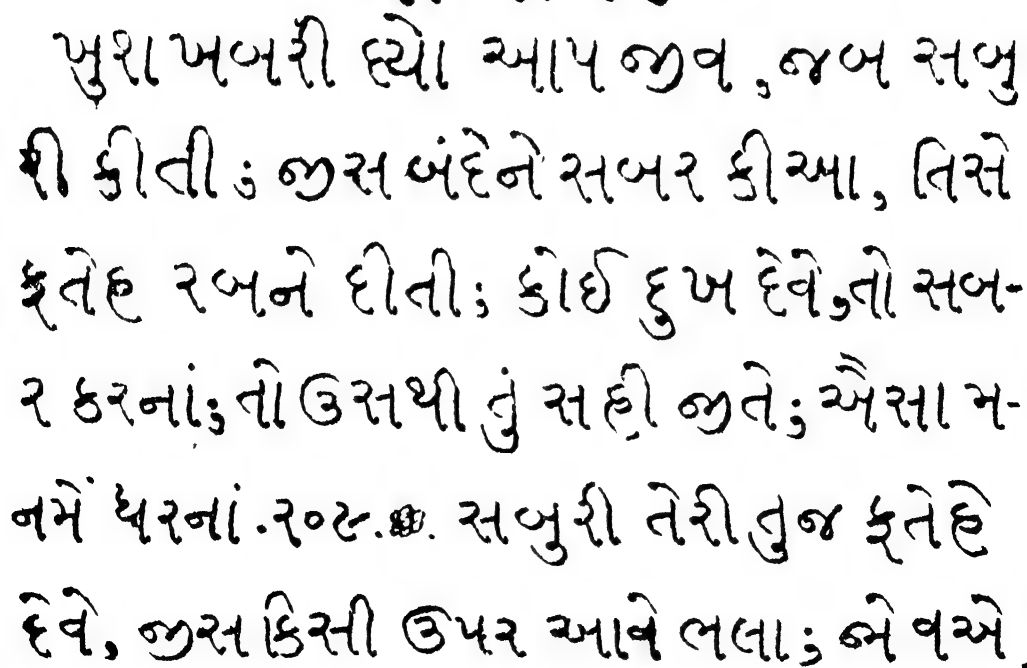 ખુશ ખબરી દ્યો આપ જીવ , જબ સબુ
રી કીતી ; જીસ બંદેને સબર કીઆ, તિસે
ફતેહ રબને દીતી ; કોઈ દુખ દેવે, તો સબ-
ર કરનાં; તો ઉસથી તું સહી જીતે ; ઐસા મ-
નમેં ધરનાં . ૨૦૯ . સબુરી તેરી તુજ ફતેહે
દેવે, જીસ કિસી ઉપર આવે ભલા ; વએ